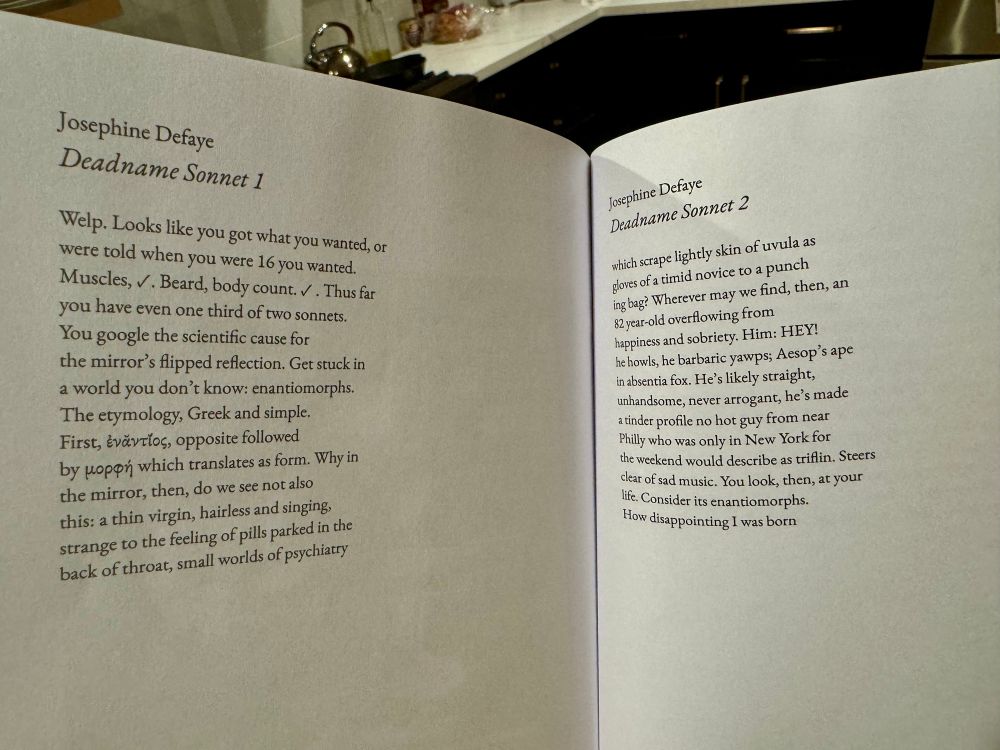 Josephine Defaye
Deadname Sonnet 1
Welp. Looks like you got what you wanted, or
were told when you were 16 you wanted.
Muscles, ✓. Beard, body count. ✓ . Thus far
you have even one third of two sonnets.
You google the scientific cause for
the mirror’s flipped reflection. Get stuck in
a world you don’t know: enantiomorphs.
The etymology, Greek and simple.
First, ἐνᾰντῐ́ος, opposite followed
by μορφή which translates as form. Why in
the mirror, then, do we see not also
this: a thin virgin, hairless and singing,
strange to the feeling of pills parked in the
back of throat, small worlds of psychiatry
Josephine Defaye
Deadname Sonnet 2
which scrape lightly skin of uvula as
gloves of a timid novice to a punch
ing bag? Wherever may we find, then, an
82 year-old overflowing from
happiness and sobriety. Him: HEY!
he howls, he barbaric yawps; Aesop’s ape
in absentia fox. He’s likely straight,
unhandsome, never arrogant, he’s made
a tinder profile no hot guy from near
Philly who was only in New York for
the weekend would describe as triflin. Steers
clear of sad music. You look, then, at your
life. Consider its enantiomorphs.
How disappointing I was born